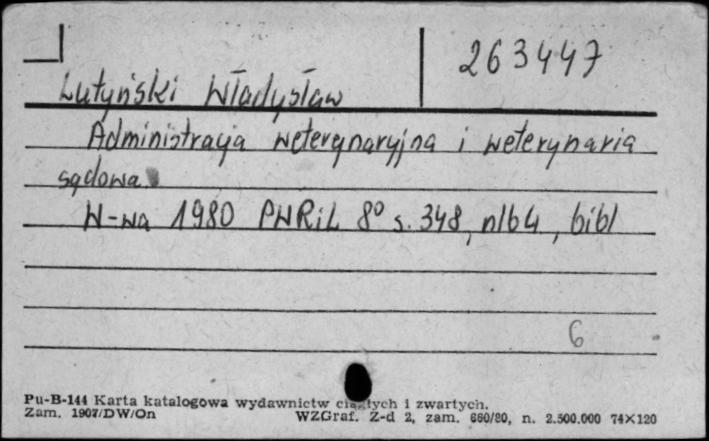 263447
Lutyński Władysław
Administracja weterynaryjna i weterynaria
sądowa
W-wa 1980 PWRiL 8° s. 348, nlb 4, bibl
6
Pu-B-144 Karta katalogowa wydawnictw ciągłych i zwartych.
Zam. 1907/DW/On WZGraf. Z-d 2, zam. 660/80, n. 2.500.000 74×120